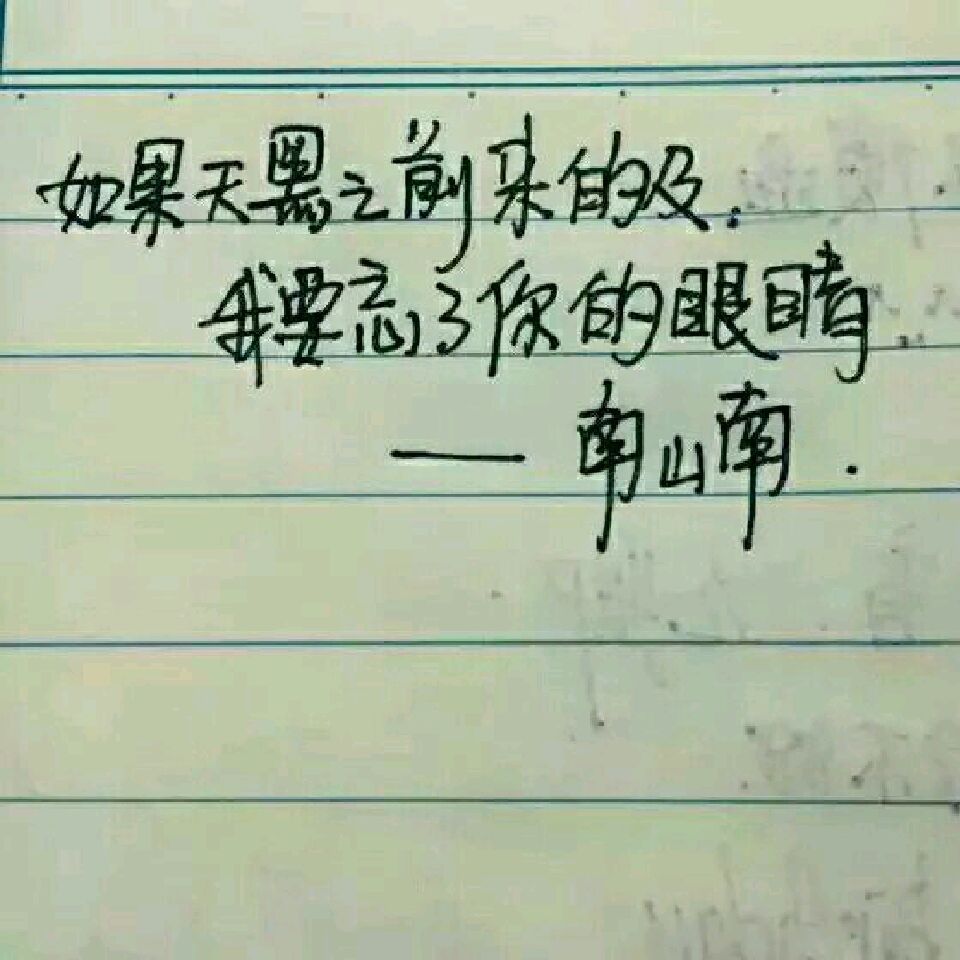 如果天黑之前来的及.
我要忘了你的眼睛
——南山南.